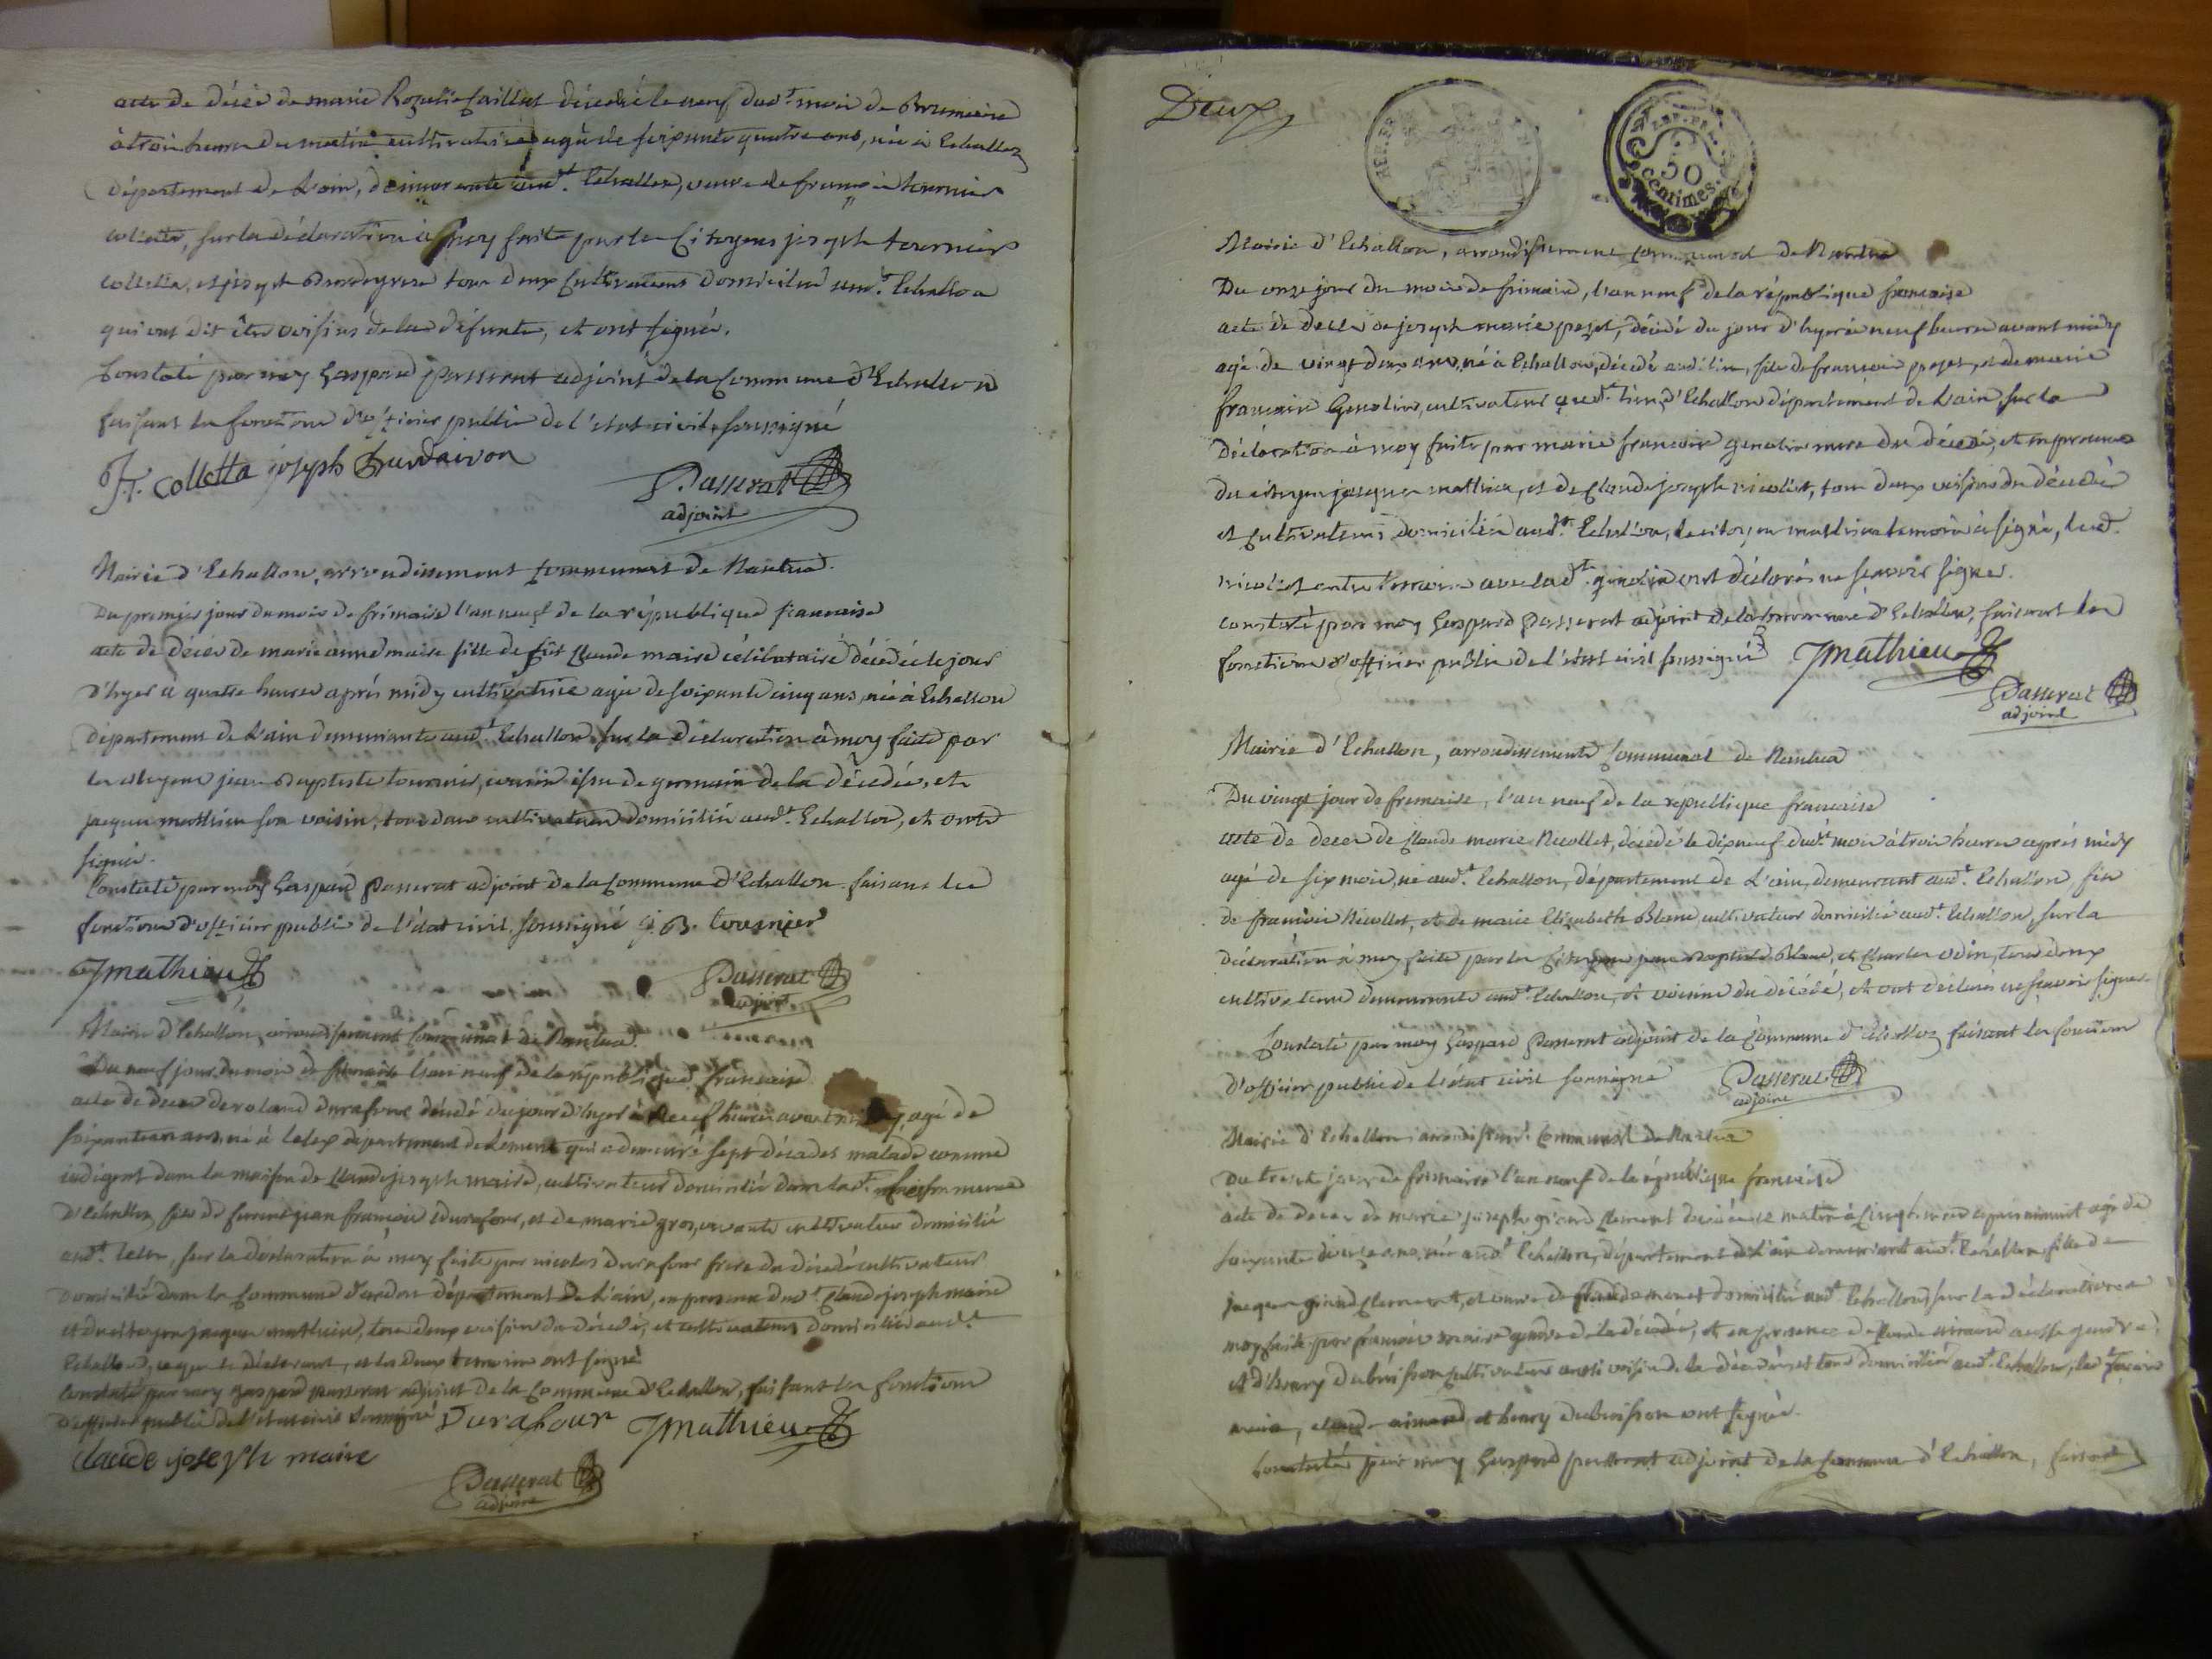 acte de décès de marie Rozalie Caillat décédé le neuf dud.t mois de Brumaire
à trois heures du matin cultivatrice agé de soixante quatre ans, née à Echallon
département de L'ain, demeurante aud.t Echallon, veuve de françois tournier
colletta, sur la déclaration à moy faite par les Citoyens joseph tournier
colletta, et joseph tous deux Cultivateurs domiciliés aud.t Echallon
qui ont dit être voisins de la défunte, et ont signés.
Constaté par moy Gaspard passerat adjoint de la Commune d'Echallon
faisant les fonctions d'officier public de l'etat civil, soussigné
J.T. colletta joseph
Passerat
adjoint
Mairie d'Echallon, arrondissement Communal de Nantua.
Du premier jour du mois de frimaire l'an neuf de la république francaise
acte de décès de marie anne maire fille de fût Claude maire célibataire décédée le jour
d'hyer à quatre heures après midy cultivatrice agée de soixante cinq ans, née à Echallon
département de L'ain demeurante aud.t Echallon, sur la déclaration à moy faite par
les citoyens jean Baptiste tournier, cousin issu de germain de la décédée, et
jacques mathieu son voisin, tous deux cultivateurs domiciliés aud.t Echallon, et ont
signés.
Constaté par moy Gaspard Passerat adjoint de la Commune d'Echallon faisant les
fonctions d'officier public de l'état civil soussigné j. B. tournier
Jmathieu
Passerat
adjoint
Mairie d'Echallon, arrondissement Communal de Nantua.
Du neuf jour du mois de frimaire l'an neuf de la république francaise
acte de décès de roland durafour décédé du jour d'hyer à neuf heures avant midy, agé de
soixante ans, né à Lelex département de Léman qui a demeuré sept décades malade comme
indigent dans la maison de Claude joseph maire, cultivateur domicilié dans lad.t Commune
d'Echallon, fils de jean francois durafour, et de marie gros, vivante cultivateur domicilié
aud.t Lelex, sur la déclaration à moy faite par nicolas Durafour frere du décédé cultivateur
domicilié dans la Commune département de L'ain, en presence dud.t Claude joseph maire
et du citoyen jacques mathieu, tous deux voisins du décédé, et cultivateurs domiciliés aud.t
Echallon, et les deux temoins ont signé.
Constaté par moy gaspard passerat adjoint de la Commune d'Echallon, faisant les fonctions
d'officier public de l'etat civil soussigné Durafour Jmathieu
Claude joseph maire
Passerat
adjoint
Deux
REP. FRA.
50
centimes.
Mairie d'Echallon, arrondissement communal de Nantua
Du onze jour du mois de frimaire, l'an neuf de la république francaise
acte de décès de joseph marie poset, décédé du jour d'hyer à neuf heures avant midy
agé de vingt deux ans, né à Echallon, décédé aud.t lieu, fils de francois poset, et de marie
francoise Genolin, cultivateur aud.t lieu d'Echallon département de L'ain sur la
déclaration à moy faite par marie francoise genolin mere du décédé, et en presence
du citoyen jacques mathieu, et de Claude joseph nicollet, tous deux voisins du décédé
et cultivateurs domiciliés aud.t Echallon, le citoyen mathieu temoin à signé, led.t
nicollet autre temoin avec lad.te genolin ont déclarés ne scavoir signer.
constaté par moy Gaspard Passerat adjoint de la Commune d'Echallon, faisant les
fonctions d'officier public de l'etat civil soussigné Jmathieu
Passerat
adjoint
Mairie d'Echallon, arrondissement Communal de Nantua
Du vingt jour de frimaire, l'an neuf de la republique francaise
acte de deces de Claude marie Nicollet, décédé le dixneuf dud.t mois à trois heures après midy
agé de six mois, né aud.t Echallon, département de L'ain, demeurant aud.t Echallon, fils
de francois Nicollet, et de marie Elizabeth Blanc, cultivateur domicilié aud.t Echallon, sur la
déclaration à moy faite par les Citoyens jean Baptiste Blanc, et Charles odin, tous deux
cultivateurs demeurants aud.t Echallon, et voisins du décédé, et ont déclarés ne scavoir signer.
Constaté par moy Gaspard Passerat adjoint de la Commune d'Echallon faisant les fonctions
d'officier public de l'état civil soussigné Passerat
adjoint
Mairie d'Echallon arrondissem.t Communal de Nantua
Du trente jour de frimaire l'an neuf de la république francaise
acte de deces de marie joseph grand Clement décédée ce matin à cinq heures après minuit agé de
soixante ans, née aud.t Echallon, département de L'ain demeurant aud.t Echallon, fille de
jacques grand Clement, et veuve de domicilié aud.t Echallon, sur la déclaration à
moy faite par francois maire gendre de la décédée, et en presence de Claude aussi gendre
et d'henry dubuisson cultivateur aussi voisin de la décédée, et tous domiciliés aud.t Echallon, led.t francois
maire, claude et henry dubuisson ont signés.
Constaté par moy Gaspard passerat adjoint de la Commune d'Echallon, faisant